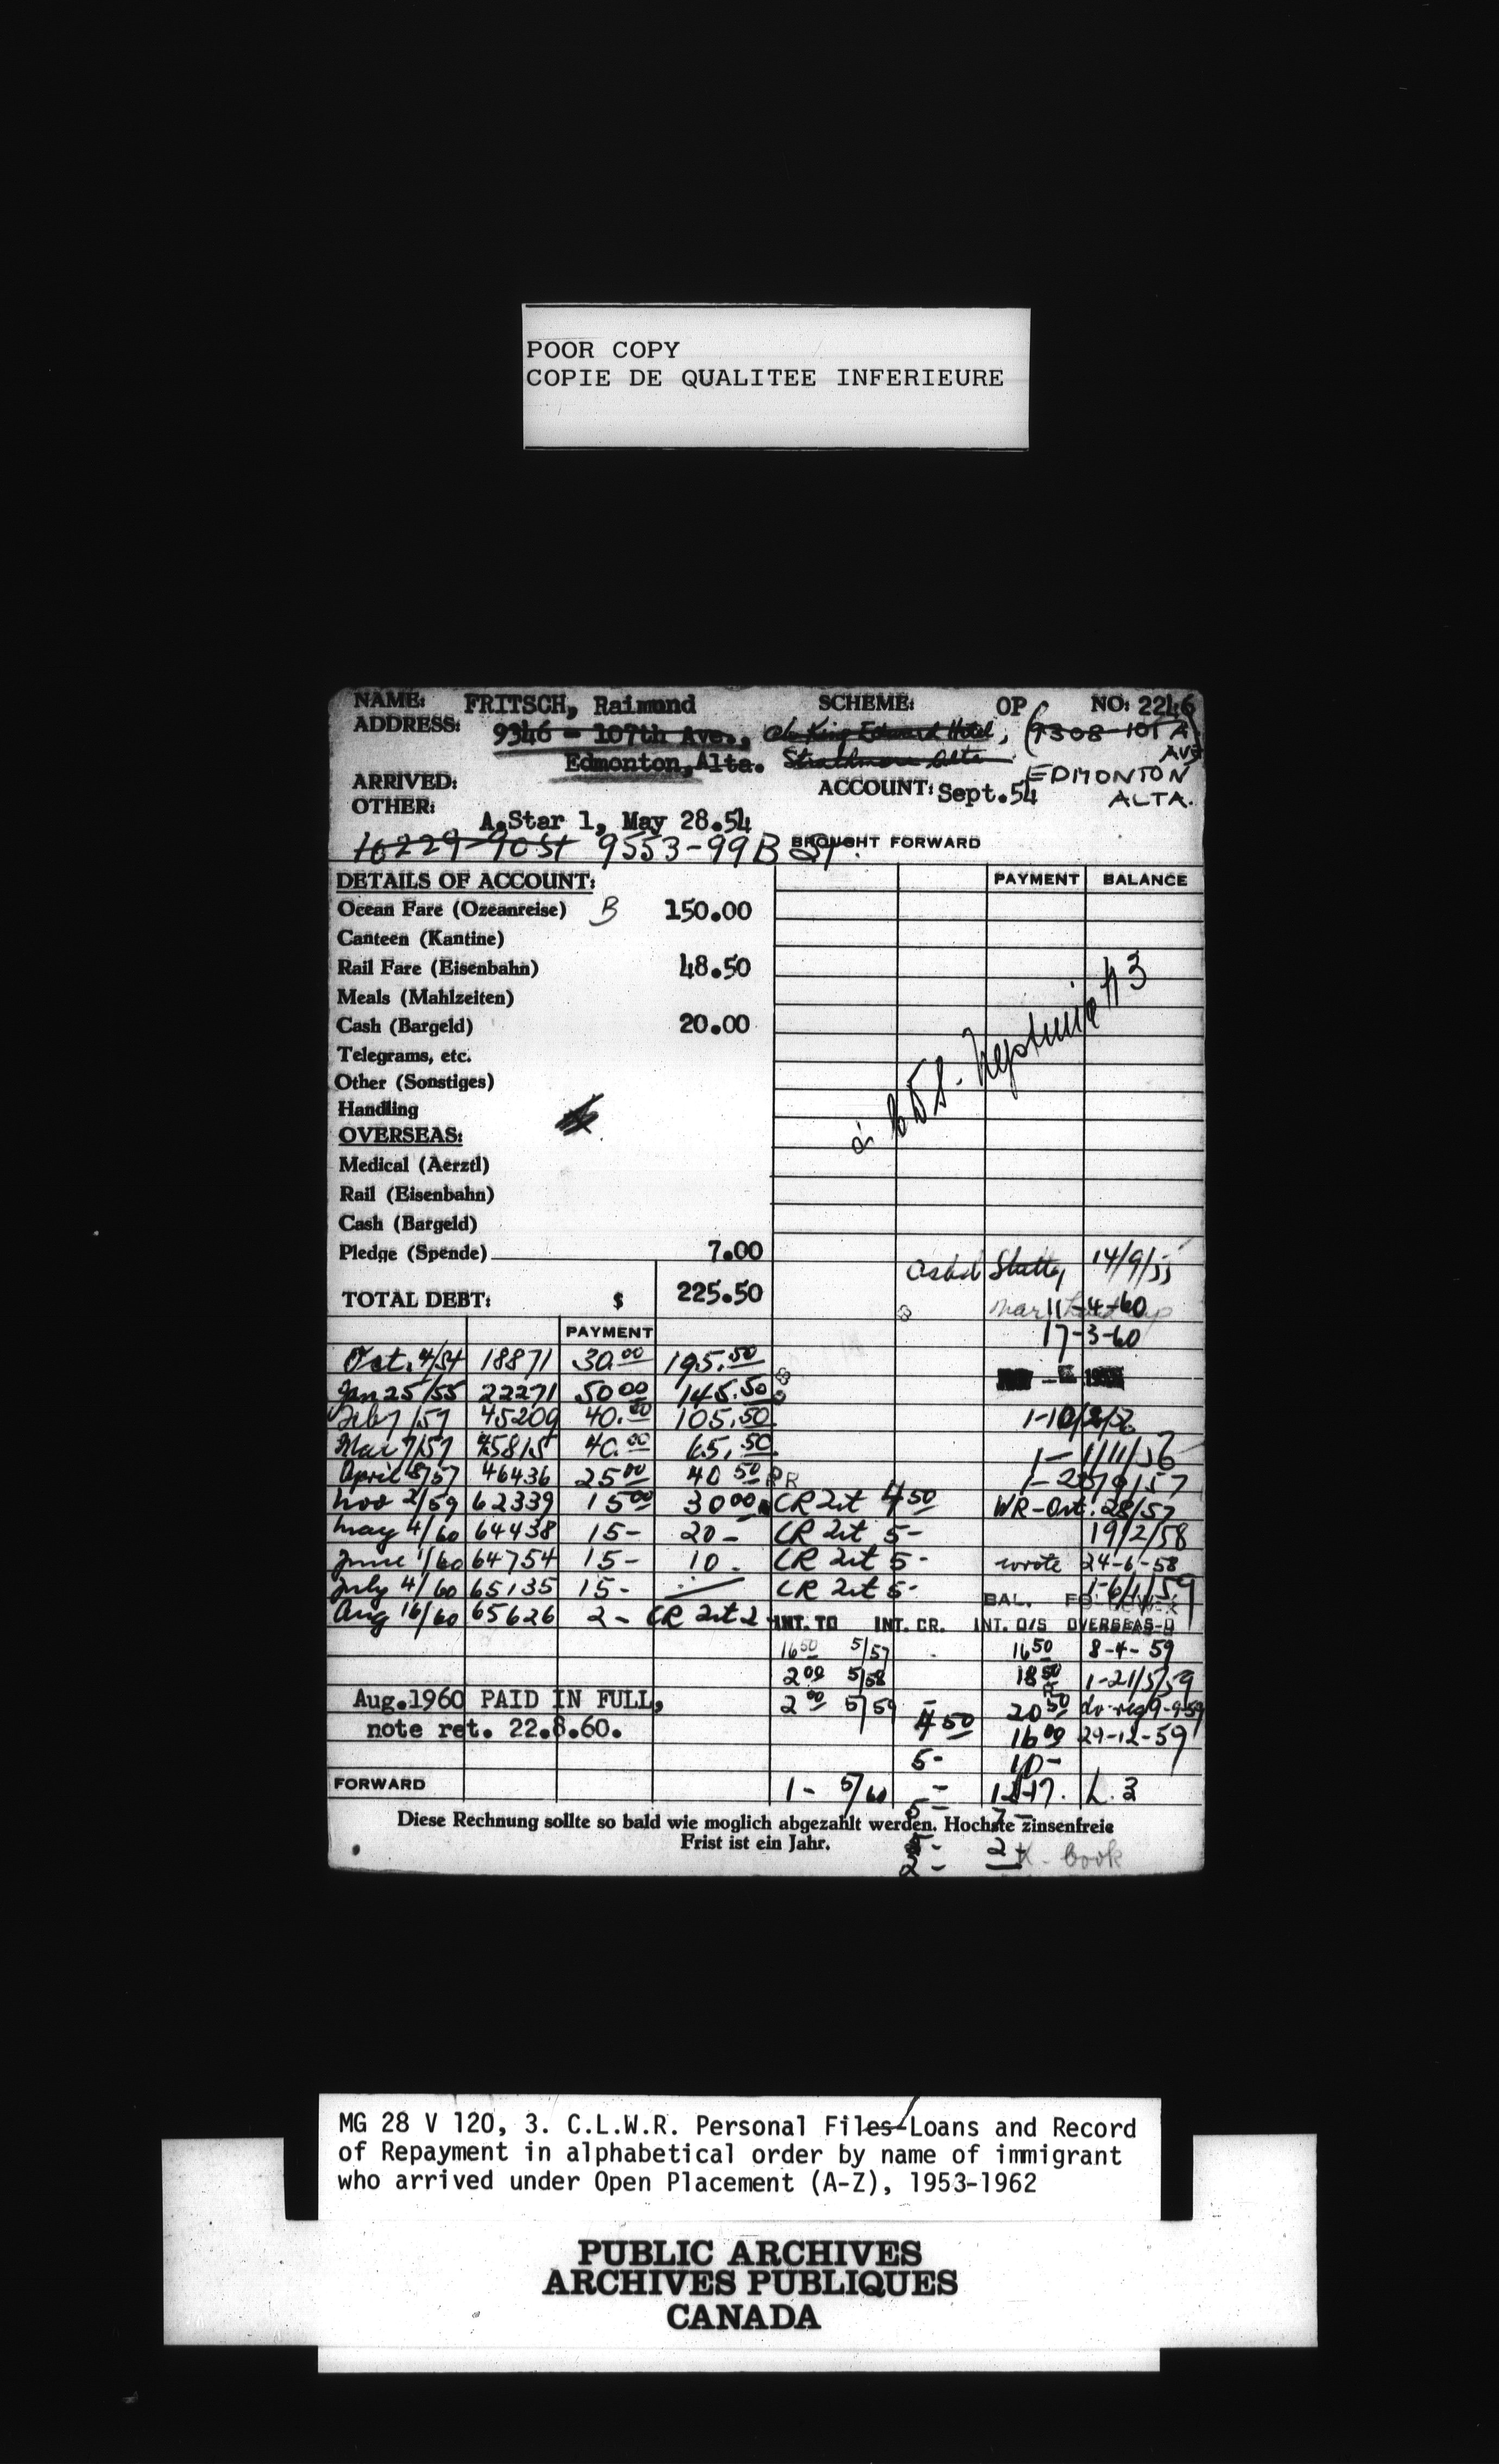 POOR COPY
COPIE DE QUALITEE INFERIEURE
NAME: FRITSCH, Raimund SCHEME: OP NO: 2246
ADDRESS: 9346 - 107th Ave., c/o King Edward Hotel, (9308-101 A AVE
Edmonton, Alta. Strathmore Alta EDMONTON
ARRIVED: ACCOUNT: Sept.54 ALTA.
OTHER:
A.Star 1, May 28.54
10229-90 St 9553-99B St. BROUGHT FORWARD
DETAILS OF ACCOUNT: PAYMENT BALANCE
Ocean Fare (Ozeanreise) B 150.00
Canteen (Kantine)
Rail Fare (Eisenbahn) 48.50
Meals (Mahlzeiten)
Cash (Bargeld) 20.00
Telegrams, etc.
Other (Sonstiges)
Handling
OVERSEAS:
Medical (Aerztl)
Rail (Eisenbahn)
Cash (Bargeld)
Pledge (Spende) 7.00
14/9/55
TOTAL DEBT: $ 225.50
11-4-60
PAYMENT 17-3-60
Oct. 4/54 18871 30.00 195.50
Jan 25/55 22271 50.00 145.50
Feb 7/57 45209 40.00 105.50
Mar 7/57 45815 40.00 65.50 1- 1/11/56
April 8/57 46436 25.00 40.50 RR
Nov 2/59 62339 15.00 30.00 CR Int 4.50 WR-Oct. 28/57
May 4/60 64438 15- 20- CR Int 5- 19/2/58
June 1/60 64754 15- 10- CR Int 5- wrote 24-6-58
July 4/60 65135 15- CR Int 5- 1-6/1/59
BAL.
Aug 16/60 65626 2- CR Int 2 INT. TO INT. CR. INT. O/S OVERSEAS-U
16.50 5/57 16.50 8-4-59
2.00 5/58 18.50 1-21/5/59
Aug.1960 PAID IN FULL, 2.00 5/59 20.50 9-9-59
note ret. 22.8.60. 4.50 16.00 29-12-59
5- 10-
FORWARD 1- 5/60 L. 3
5- 7-
Diese Rechnung sollte so bald wie moglich abgezahlt werden. Hochste zinsenfreie
Frist ist ein Jahr. 5- 2-
2- book
MG 28 V 120, 3. C.L.W.R. Personal Files-Loans and Record
of Repayment in alphabetical order by name of immigrant
who arrived under Open Placement (A-Z), 1953-1962
PUBLIC ARCHIVES
ARCHIVES PUBLIQUES
CANADA